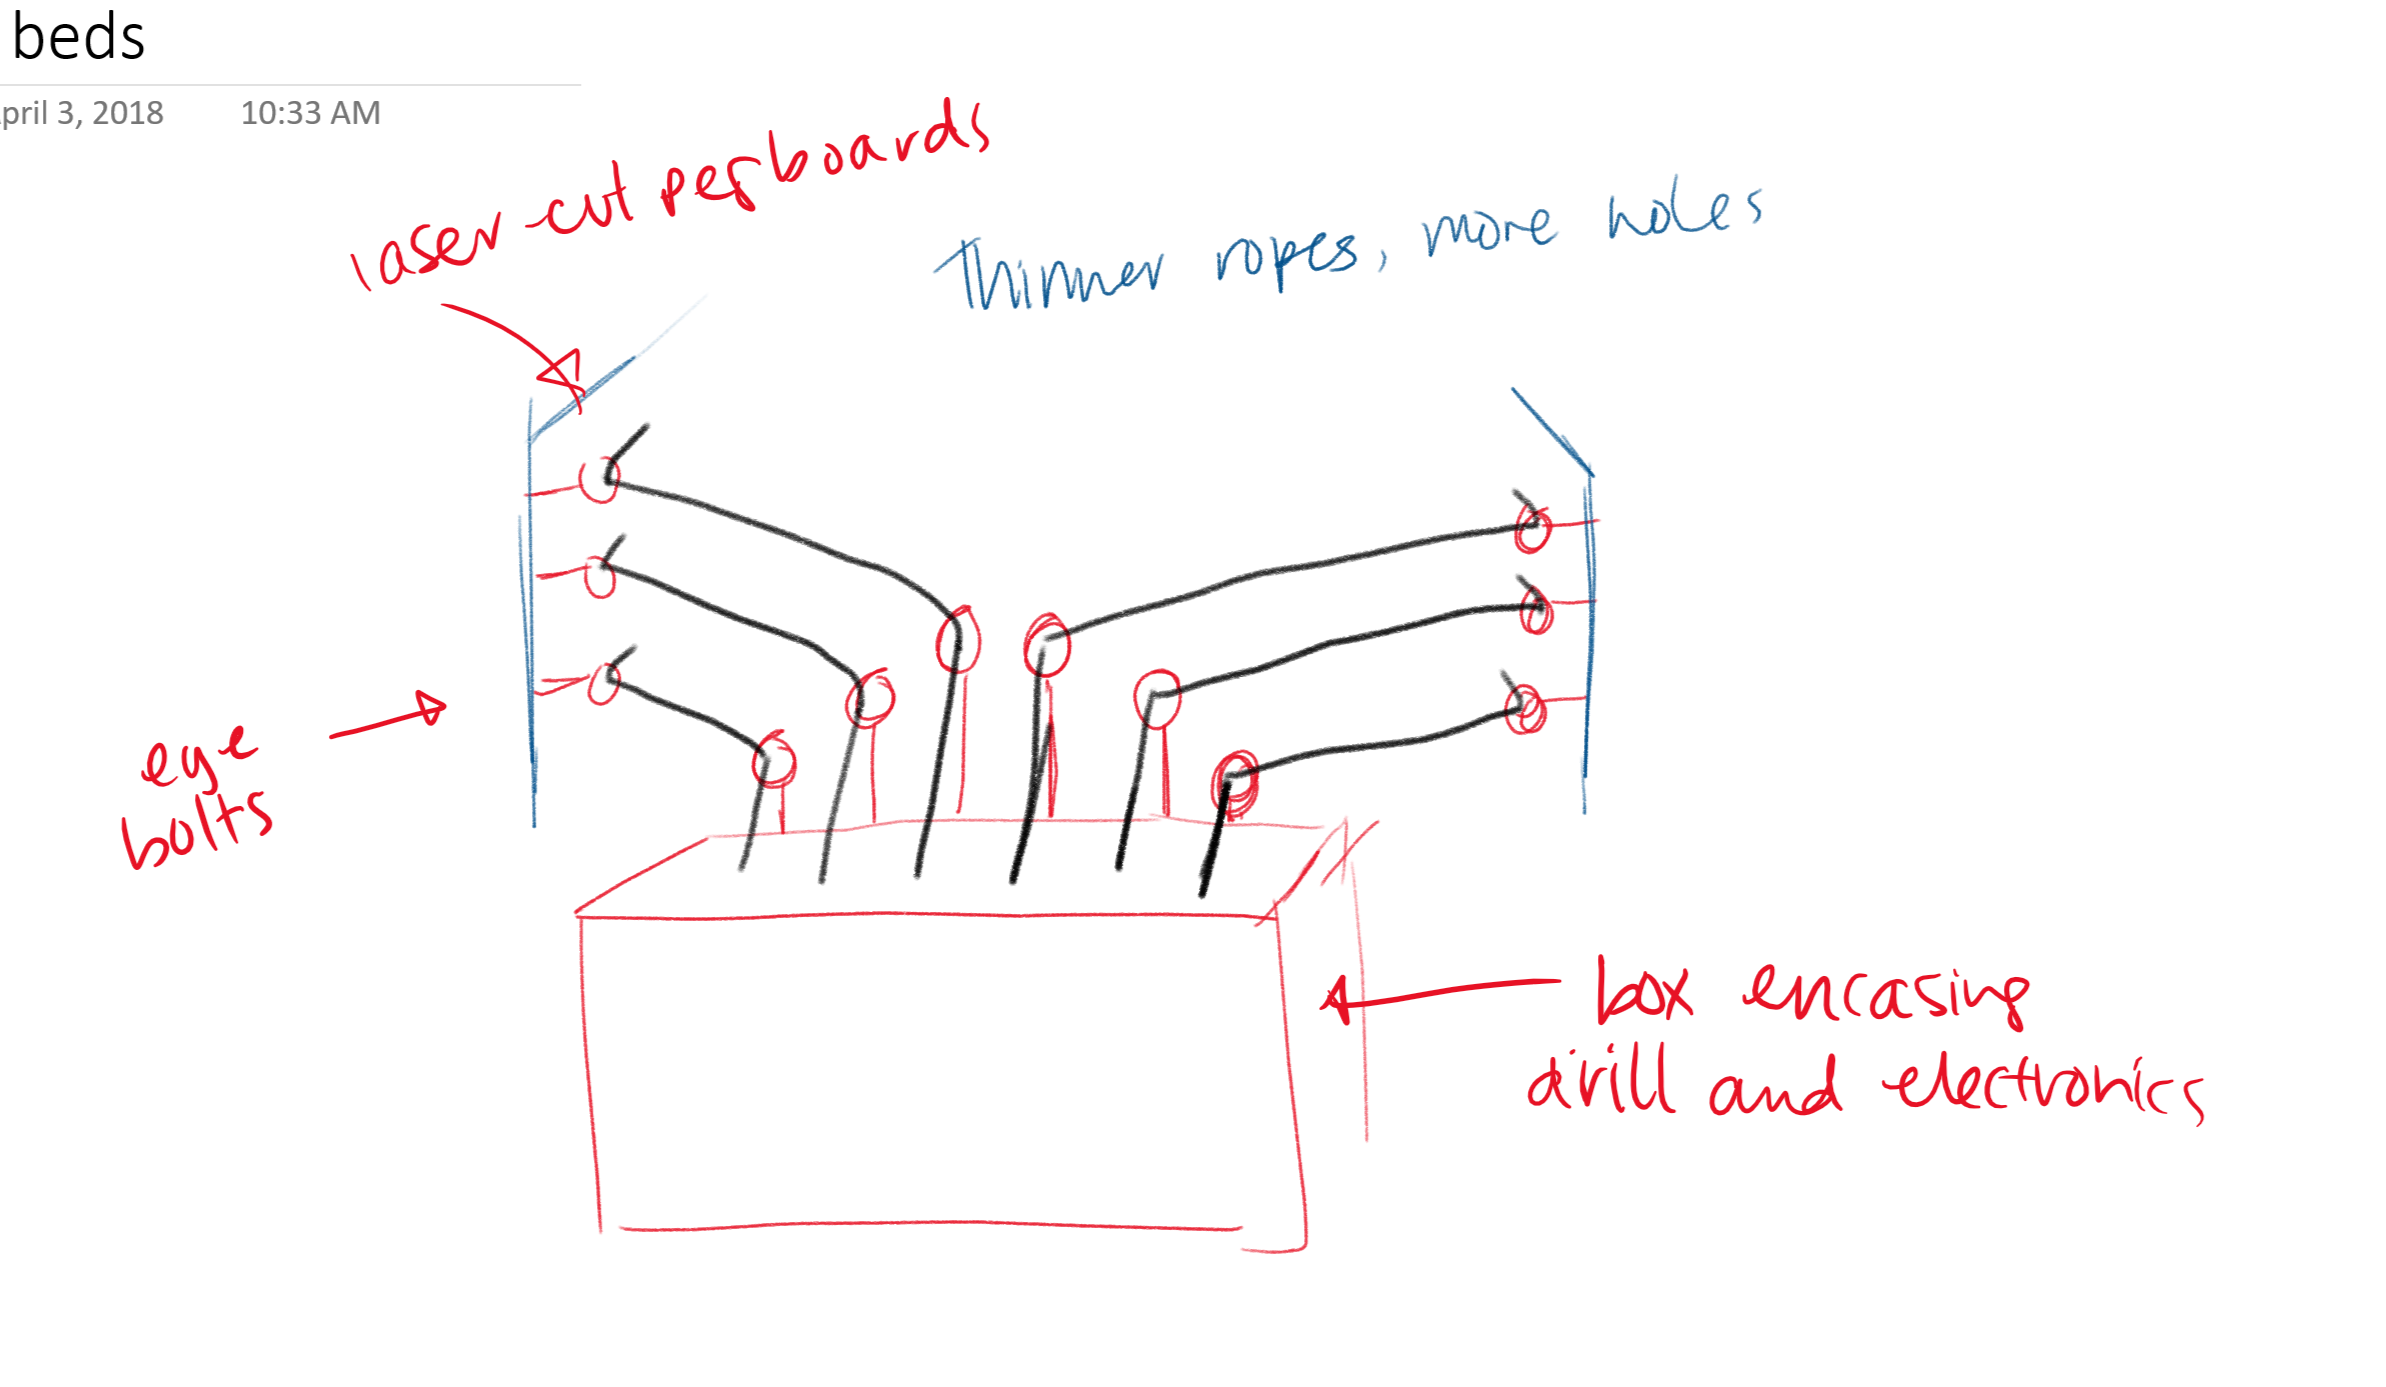 beds
pril 3, 2018 10:33 AM
laser-cut pegboards
Thinner ropes, more holes
eye
bolts
box encasing
drill and electronics